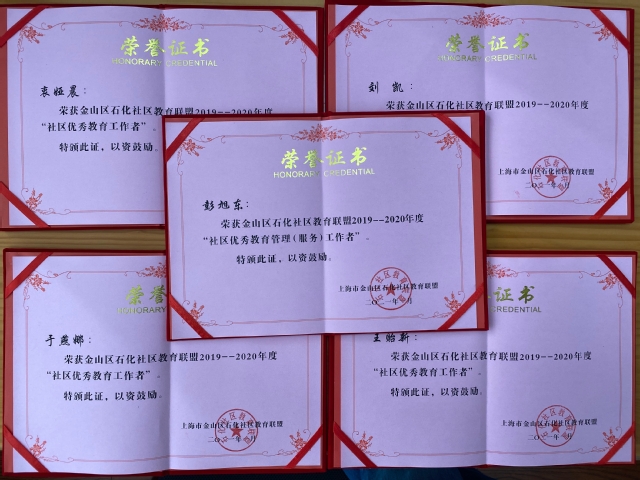 荣誉证书
HONORARY CREDENTIAL
袁娅晨：
荣获金山区石化社区教育联盟2019--2020年度
“社区优秀教育工作者”。
特颁此证，以资鼓励。
荣誉证书
HONORARY CREDENTIAL
刘 凯：
荣获金山区石化社区教育联盟2019--2020年度
上海市金山区石化社区教育联盟
荣誉证书
HONORARY CREDENTIAL
彭旭东：
荣获金山区石化社区教育联盟2019--2020年度
“社区优秀教育管理(服务)工作者”。
特颁此证，以资鼓励。
上海市金山区石化社区教育联盟
二〇二一年 月
荣
HONORARY
于燕娜：
荣获金山区石化社区教育联盟2019--2020年度
“社区优秀教育工作者”。
特颁此证，以资鼓励。
上海市金山区石化社区教育联盟
二〇二一年 月
证书
CREDENTIAL
王贻新：
荣获金山区石化社区教育联盟2019--2020年度
“社区优秀教育工作者”。
特颁此证，以资鼓励。
上海市金山区石化社区教育联盟
二〇二一年 月